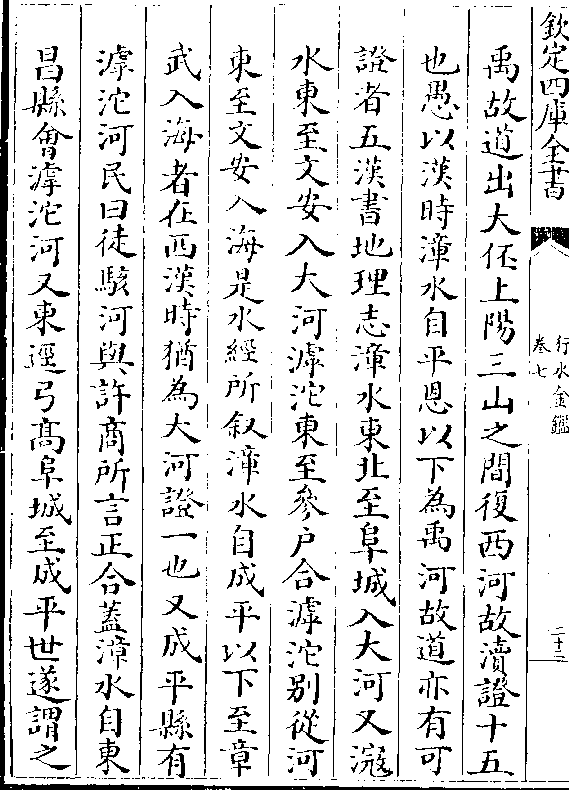 欽定四庫全書
行水金鑑
卷七
二十三
禹故道出大伾上陽三山之間復西河故瀆證十五
也愚以漢時漳水自平恩以下為禹河故道亦有可
證者五漢書地理志漳水東北至阜城入大河又㴲
水東至文安入大河滹沱東至參户合滹沱别從河
東至文安入海是水經所叙漳水自成平以下至章
武入海者在西漢時猶為大河證一也又成平縣有
滹沱河民曰徒駭河與許商所言正合蓋漳水自東
昌縣會滹沱河又東逕弓髙阜城至成平世遂謂之